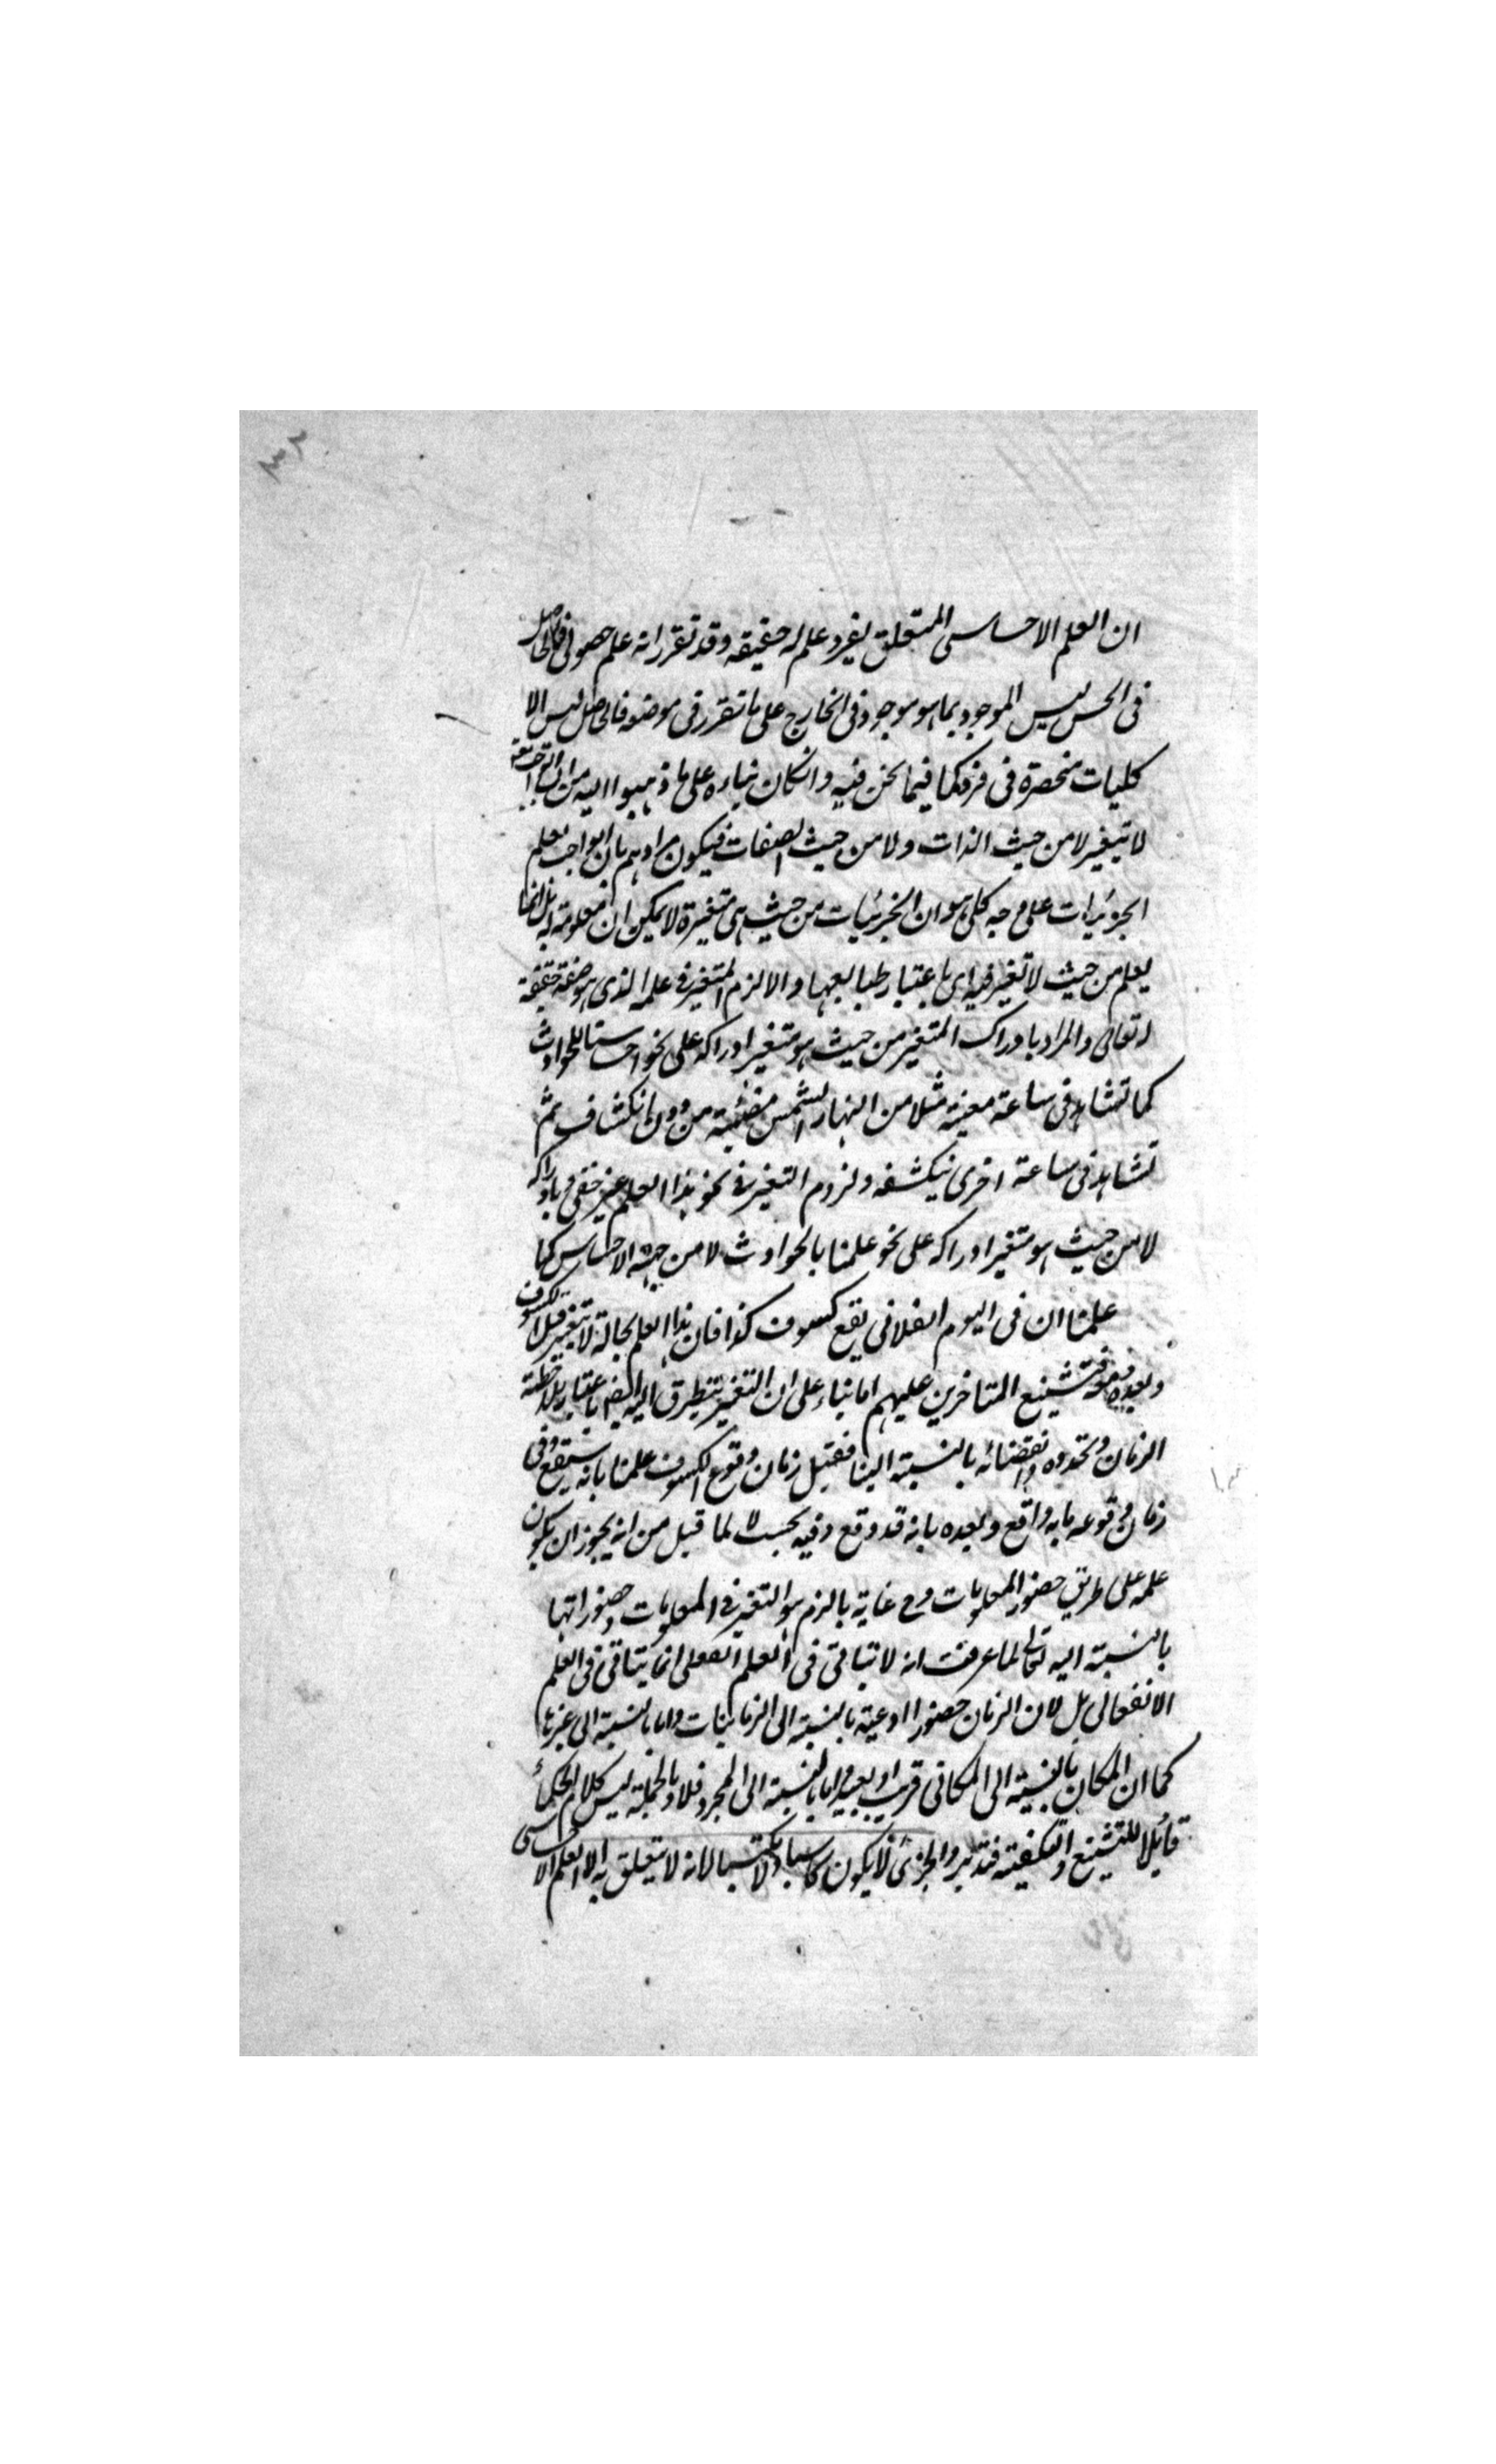 ٣٢
ان العلم الاحساسى المتعلق بفرد علم له حقيقه وقد تقرر انه علم حصولى فالحاصل
فى الحس ليس الموجود بما هو موجود فى الخارج على ما تقرر فى موضعه فالحاصل ليس الا
كليات منحصرة فى فرد كما فيما نحن فيه وانكان بناءه على ما ذهبوا اليه من ان الواجب
لا يتغير لا من حيث الذات ولا من حيث الصفات فيكون مرادهم بان الواجب يعلم
الجزئيات على وجه كلى هو ان الجزئيات من حيث هى متغيرة لا يمكن ان معلومة له بل انما
يعلم من حيث لا تغير فيه اى باعتبار طبايعها والا لزم المتغير فى علمه الذى هو صفة حقيقة
له تعالى والمراد بادراك المتغير من حيث هو متغير ادراكه على نحو احساسنا للحوادث
كما تشاهد فى ساعة معينة مثلا من النهار الشمس مضئية من دون انكشاف ثم
تشاهد فى ساعة اخرى نيكشفه ولزوم التغير فى نحو هذا العلم غير خفى وبادراكه
لا من حيث هو متغير ادراكه على نحو علمنا بالحوادث لا من جهة الاحساس كما
علمنا ان فى اليوم الفلانى يقع كسوف كذا فان هذا العلم بحاله لا يتغير قبل الكسوف
وبعده ومعه فتشنيع المتاخرين عليهم اما بناء على ان التغير يتطرق اليه ايضا باعتبار ملاحظة
الزمان وتجدده وانقضائه بالنسبة الينا فقبل زمان وقوع الكسوف علمنا بانه سيقع وفى
زمان وقوعه بانه واقع وبعده بانه قد وقع وفيه بحث لا لما قيل من انه يجوز ان يكون
علمه على طريق حضور المعلومات وح غاية ما لزم هو التغير فى المعلومات وحضوراتها
بالنسبة اليه تعالى لما عرفت انه لا يتاتى فى العلم الفعلى انما يتاتى فى العلم
الانفعالى بل لان الزمان حضور اادعية بالنسبة الى الزمانيات واما بالنسبة الى غيرها
كما ان المكان بالنسبة الى المكانى قريب او بعيد واما بالنسبة الى المجرد فلا وبالجملة ليس كلام الحكماء
قابلا للتشنيع والتكفير فتدبر والجزئى لا يكون كاسبا ولا مكتسبا لانه لا يتعلق به الا العلم الاحساسى